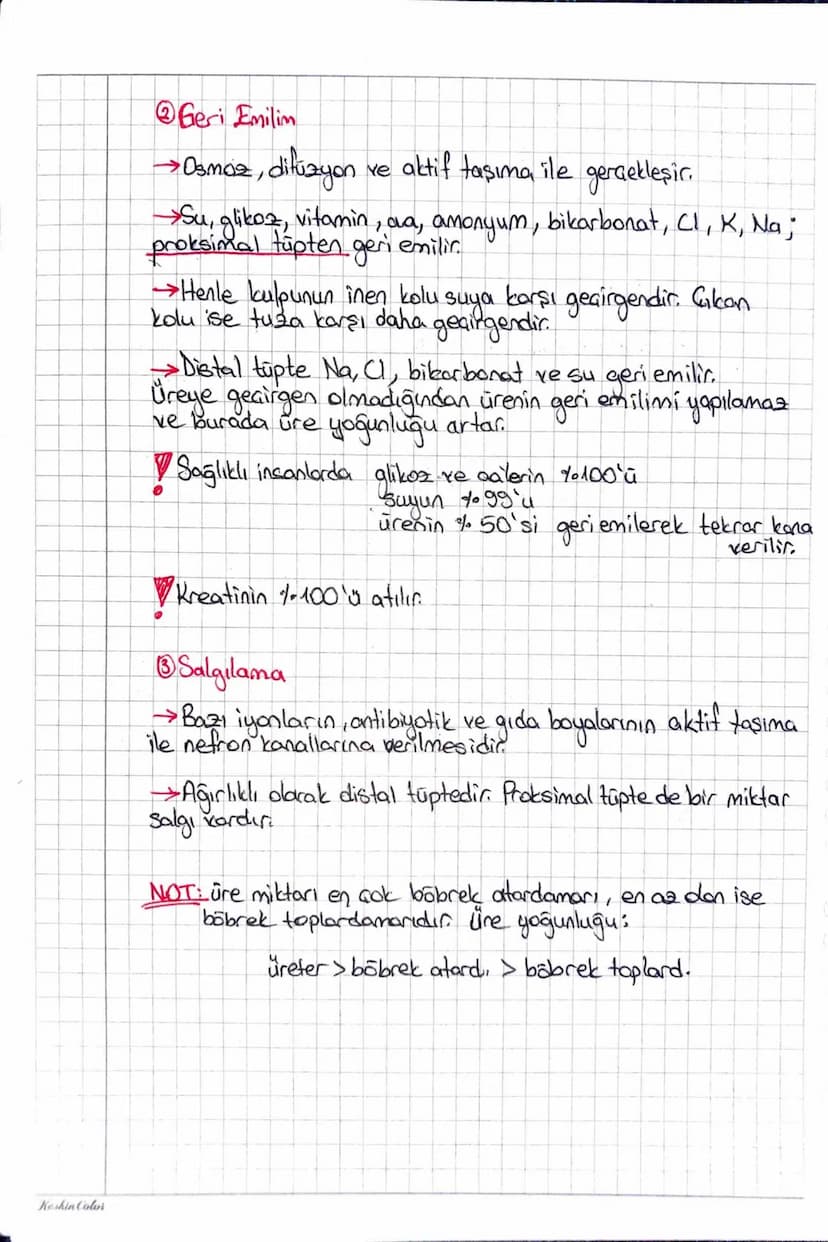 ② Geri Emilim
→Osmoz, difüzyon ve aktif taşıma ile gerçekleşir.
→Su, glikoz, vitamin, aa, amonyum, bikarbonat, Cl, K, Na;
proksimal tüpten geri emilir.
→Henle kulpunun inen kolu suya karşı geçirgendir. Çıkan
kolu ise tuza karşı daha geçirgendir.
→Distal tüpte Na, Cl, bikarbonat ve su geri emilir.
Üreye geçirgen olmadığından ürenin geri emilimi yapılamaz
ve burada üre yoğunluğu artar.
! Sağlıklı insanlarda glikoz ve aa'lerin %100'ü
suyun %99'u
ürenin %50'si geri emilerek tekrar kana
verilir.
! Kreatinin %100'ü atılır.
③ Salgılama
→Bazı iyonların, antibiyotik ve gıda boyalarının aktif taşıma
ile nefron kanallarına verilmesidir.
→Ağırlıklı olarak distal tüptedir. Proksimal tüpte de bir miktar
salgı vardır.
NOT: üre miktarı en çok böbrek atardamarı, en az dan ise
böbrek toplardamarıdır. Üre yoğunluğu:
üreter > böbrek atard. > böbrek toplard.
Keskin Color